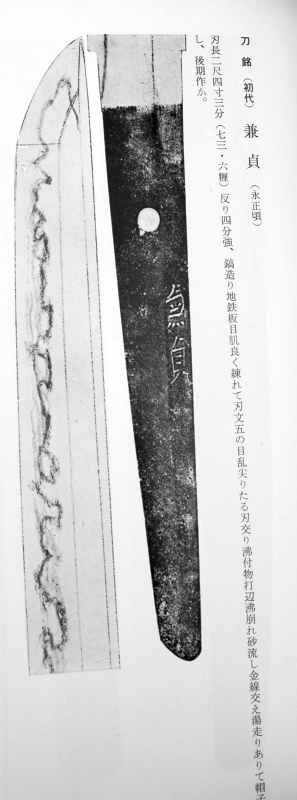 刀 銘 (初代) 兼貞 (永正頃)
刃長二尺四寸三分(七三・六糎)反り四分強、鎬造り地鉄板目肌良く練れて刃文五の目乱尖りたる刃交り沸付物打辺沸崩れ砂流し金線交え湯走りありて帽子
し、後期作か。
兼貞